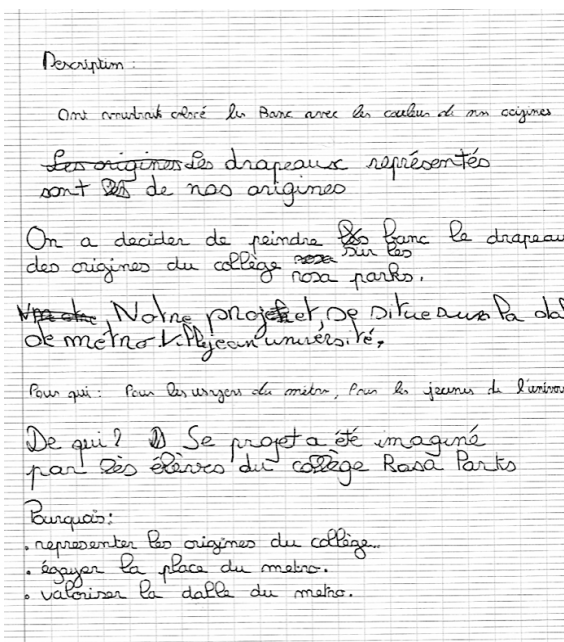 Description :
Ont voudrait coloré les Banc avec les couleur de nos origines
Les origines Les drapeaux représentés
sont les de nos origines
On a decider de peindre les banc le drapeau
sur les
des origines du collège rosa rosa parks.
Notre projet se situe sur la dal
de métro Villejean université,
Pour qui : Pour les usagers du métro, Pour les jeunes de l'univer
De qui ? Se projet a été imaginé
par les élèves du collège Rosa Parks
Pourquoi :
. représenter les origines du collège..
. égayer la place du metro.
. valoriser la dalle du metro.